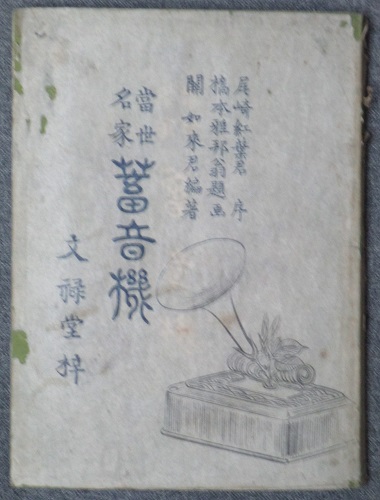 尾崎紅葉君序
橋本雅邦翁題画
関如来君編著
當世
名家
蓄音機
文禄堂梓